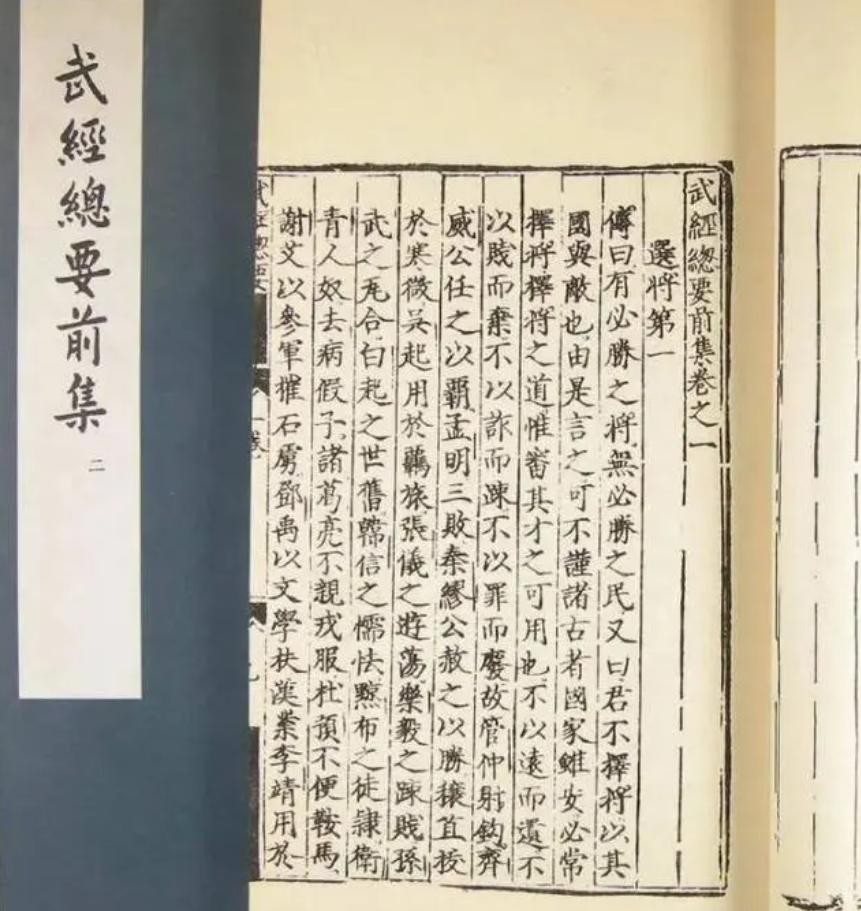 武經總要前集
二
武經總要前集卷之一
選將第一
傳曰有必勝之將無必勝之民又曰君不擇將以其
國與敵也由是言之可不謹諸古者國家雖安必常
擇將擇將之道惟審其才之可用也不以遠而遺不
以賤而棄不以詐而踈不以罪而廢故管仲射鉤齊
威公任之以覇孟明三敗秦繆公赦之以勝穰苴拔
於寒微吳起用於羈旅張儀之遊蕩樂毅之踈賤孫
武之瓦合白起之世舊韓信之懦怯黥布之徒隸衛
青人奴去病假子諸葛亮不親戎服杜預不便鞍馬
謝艾以參軍摧石虜鄧禹以文學扶漢業李靖用於
武經總要